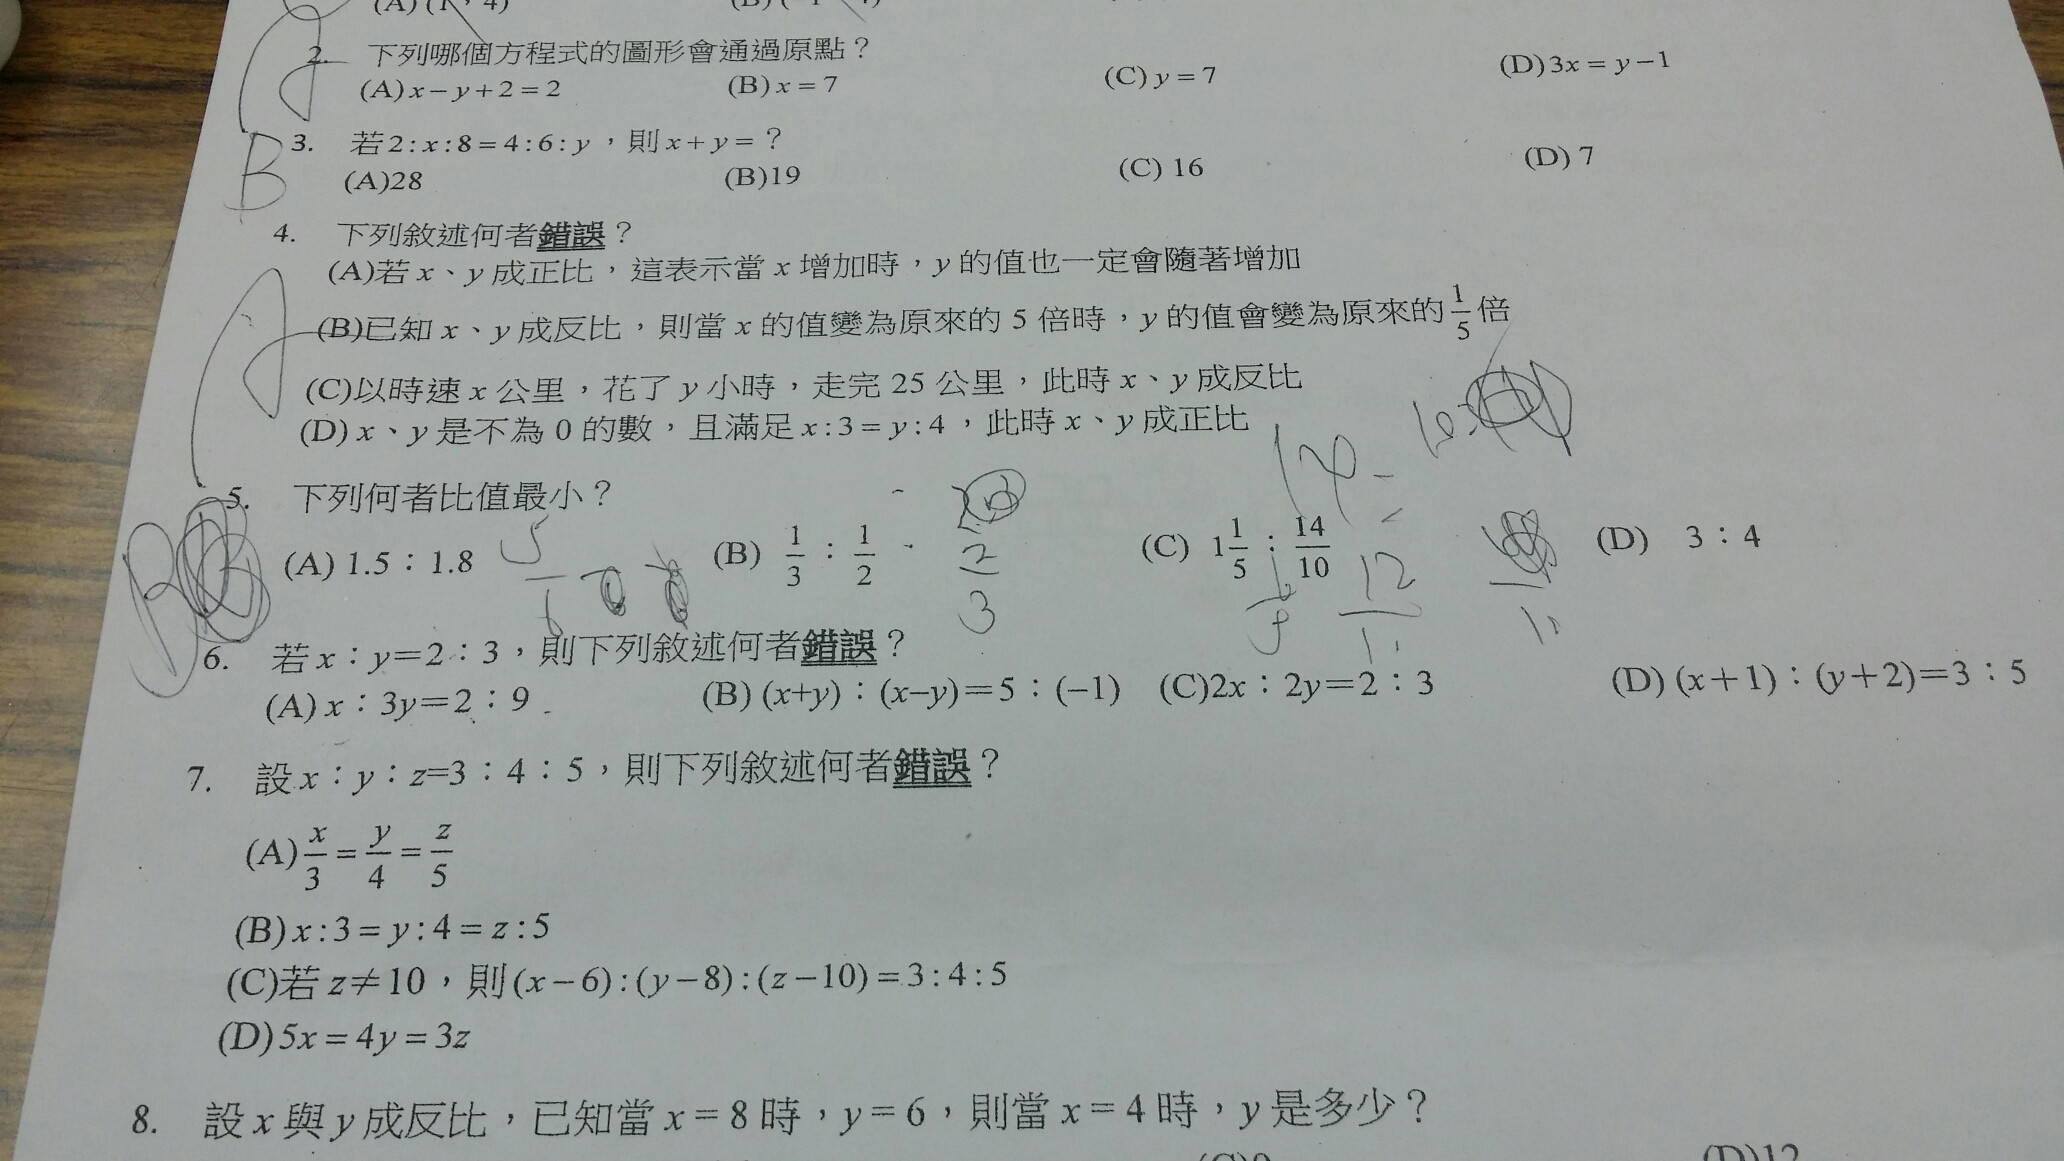 2. 下列哪個方程式的圖形會通過原點？
(A) x−y+2=2 (B) x=7 (C) y=7 (D) 3x=y−1
B 3. 若2:x:8=4:6:y，則x+y=？
(A)28 (B)19 (C) 16 (D) 7
4. 下列敘述何者錯誤？
(A)若 x、y 成正比，這表示當 x 增加時，y 的值也一定會隨著增加
(B)已知 x、y 成反比，則當 x 的值變為原來的 5 倍時，y 的值會變為原來的 1/5 倍
(C)以時速 x 公里，花了 y 小時，走完 25 公里，此時 x、y 成反比
(D) x、y 是不為 0 的數，且滿足 x:3=y:4，此時 x、y 成正比
B 5. 下列何者比值最小？
(A) 1.5：1.8 5/6 (B) 1/3 : 1/2 2 3 (C) 1 1/5 : 14/10 12 (D) 3：4
6. 若 x：y＝2：3，則下列敘述何者錯誤？
(A) x：3y＝2：9 (B) (x+y)：(x–y)＝5：(–1) (C)2x：2y＝2：3 (D) (x＋1)：(y＋2)＝3：5
7. 設 x：y：z=3：4：5，則下列敘述何者錯誤？
(A) x/3 = y/4 = z/5
(B) x:3=y:4=z:5
(C)若 z≠10，則(x−6):(y−8):(z−10)=3:4:5
(D) 5x=4y=3z
8. 設 x 與 y 成反比，已知當 x=8 時，y=6，則當 x=4 時，y 是多少？
(D)12